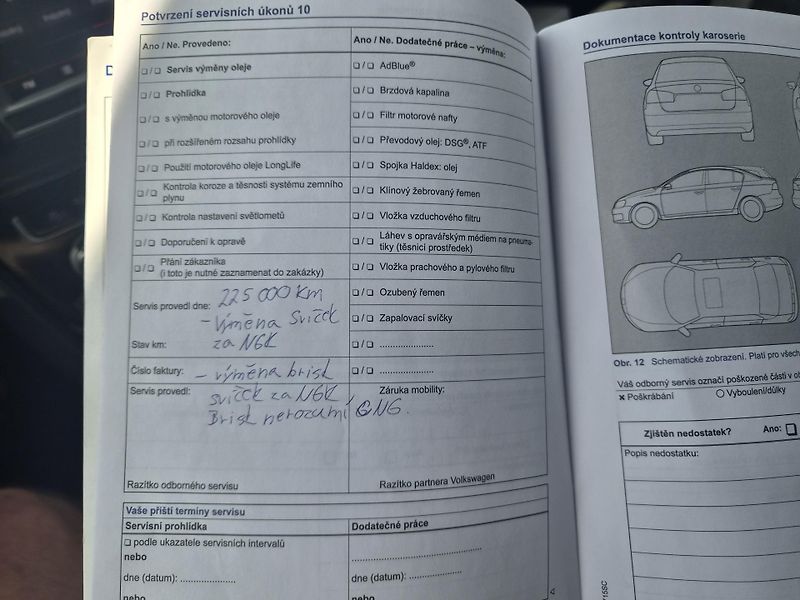 Potvrzení servisních úkonů 10
Ano / Ne. Provedeno:
❑ / ❑ Servis výměny oleje
❑ / ❑ Prohlídka
❑ / ❑ s výměnou motorového oleje
❑ / ❑ při rozšířeném rozsahu prohlídky
❑ / ❑ Použití motorového oleje LongLife
❑ / ❑ Kontrola koroze a těsnosti systému zemního
plynu
❑ / ❑ Kontrola nastavení světlometů
❑ / ❑ Doporučení k opravě
❑ / ❑ Přání zákazníka
(i toto je nutné zaznamenat do zakázky)
Ano / Ne. Dodatečné práce – výměna:
❑ / ❑ AdBlue®
❑ / ❑ Brzdová kapalina
❑ / ❑ Filtr motorové nafty
❑ / ❑ Převodový olej: DSG®, ATF
❑ / ❑ Spojka Haldex: olej
❑ / ❑ Klínový žebrovaný řemen
❑ / ❑ Vložka vzduchového filtru
❑ / ❑ Láhev s opravářským médiem na pneuma-
tiky (těsnicí prostředek)
❑ / ❑ Vložka prachového a pylového filtru
❑ / ❑ Ozubený řemen
❑ / ❑ Zapalovací svíčky
❑ / ❑ .....................
❑ / ❑ .....................
Servis provedl dne: 225 000 km
– Výměna Svíček
Stav km: za NGK
Číslo faktury: – výměna brisk
Servis provedl: svíček za NGK,
Brisk nerozumí CNG.
Záruka mobility:
Razítko odborného servisu
Razítko partnera Volkswagen
Vaše příští termíny servisu
Servisní prohlídka
❑ podle ukazatele servisních intervalů
nebo
dne (datum): .....................
nebo
Dodatečné práce
..................................
dne (datum): ....................
nebo
4
Dokumentace kontroly karoserie
Obr. 12 Schematické zobrazení. Platí pro všech
Váš odborný servis označí poškozené části v ob
× Poškrábání
○ Vyboulení/důlky
Zjištěn nedostatek?
Ano: ❑
Popis nedostatku: